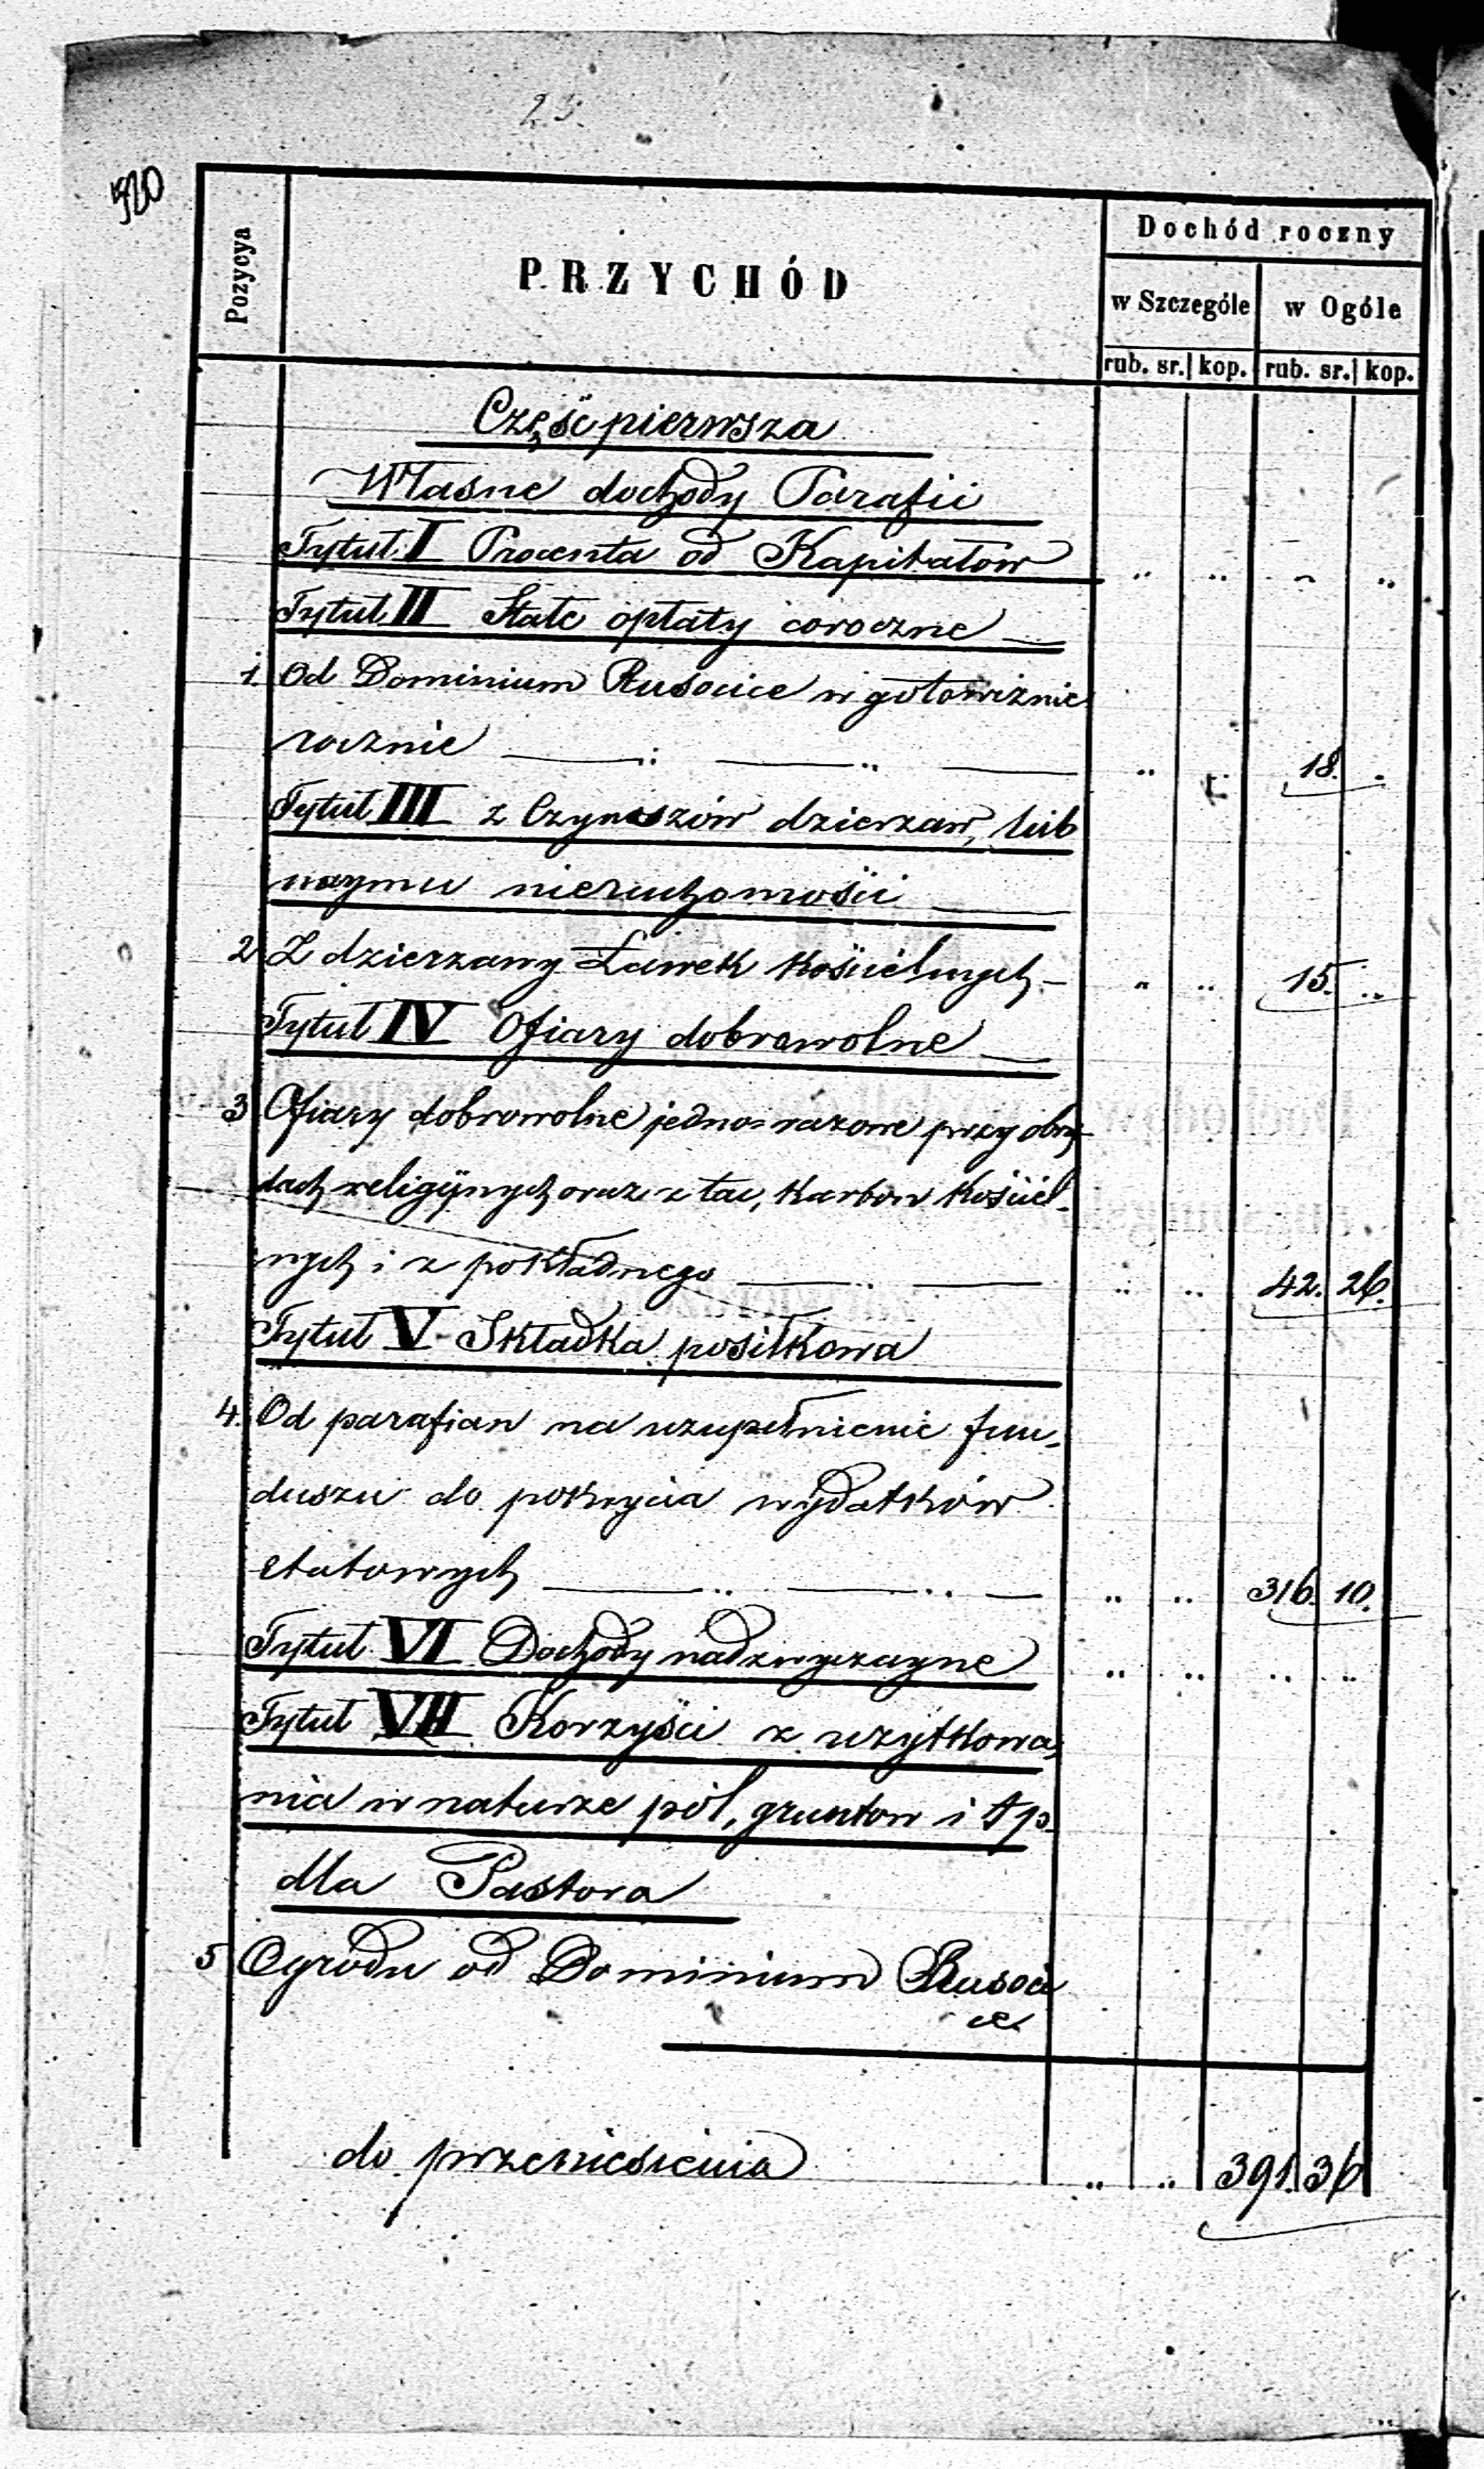 25.
520
Pozycya
PRZYCHÓD
Dochód roczny
w Szczególe
w Ogóle
rub. sr. kop. rub. sr. kop.
Część pierwsza
Własne dochody Parafii
Tytuł I Procenta od Kapitałów " " " "
Tytuł II Stałe opłaty coroczne —
1. Od Dominium Rusocice w gotowiznie
rocznie — " — " — " " 18. "
Tytuł III z Czynszów dzierzaw, lub
naymu nieruchomości —
2 Z dzierzawy Ławek kościelnych — " " 15. "
Tytuł IV Ofiary dobrowolne —
3 Ofiary dobrowolne jedno=razowe przy obrzę
dach religijnych oraz z tac, karbon kościel-
nych i z pokładnego — " — " " 42. 26.
Tytuł V Składka posiłkowa
4. Od parafian na uzupełnienie fun-
duszu do pokrycia wydatków
etatowych — " — " — " " 316. 10.
Tytuł VI Dochody nadzwyczayne " " " "
Tytuł VII Korzyści z uzytkowa-
nia w naturze pól, gruntow i t p.
dla Pastora
5 Ogrodu od Dominium Rusoci
ce
do przeniesienia " " 391. 36